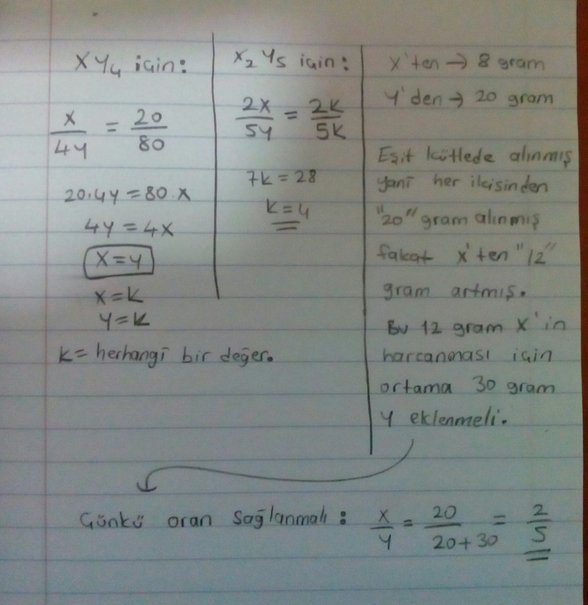 XY₄ için:
x/4y = 20/80
20.4y = 80.x
4y = 4x
x = y
x = k
y = k
k = herhangi bir değer.
X₂Y₅ için:
2x/5y = 2k/5k
7k = 28
k = 4
X'ten → 8 gram
Y'den → 20 gram
Eşit kütlede alınmış
yani her ikisinden
"20" gram alınmış
fakat x'ten "12"
gram artmış.
Bu 12 gram X'in
harcanması için
ortama 30 gram
Y eklenmeli.
Çünkü oran sağlanmalı: x/y = 20/20+30 = 2/5